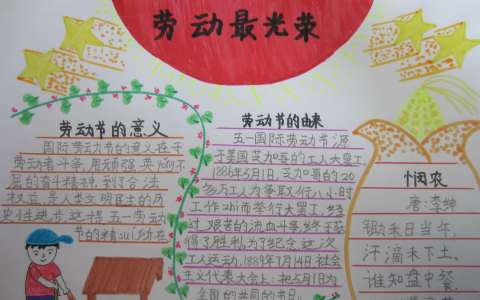 劳动最光荣
劳动节的意义
国际劳动节的意义在于
劳动者斗争,用顽强、英勇不
屈的奋斗精神,到了合法
权益,是人类文明民主的历
史性进步,这才是五一劳动
节的精
所在
劳动节的由来
五一国际劳动节源
于美国芝加哥的工人大罢工
1886年5月1日,芝加哥的20
多万工人为争取八小时
工作zhi而举行大罢工,经
过艰苦的流血斗争,终于
得了胜利。为了纪念这次
工人运动,1889年7月14日社会
主义代表大会上:把5月1日为
全国的共同的节日。
悯农
唐:李绅
锄禾日当午,
汗滴禾下土。
谁知盘中餐,